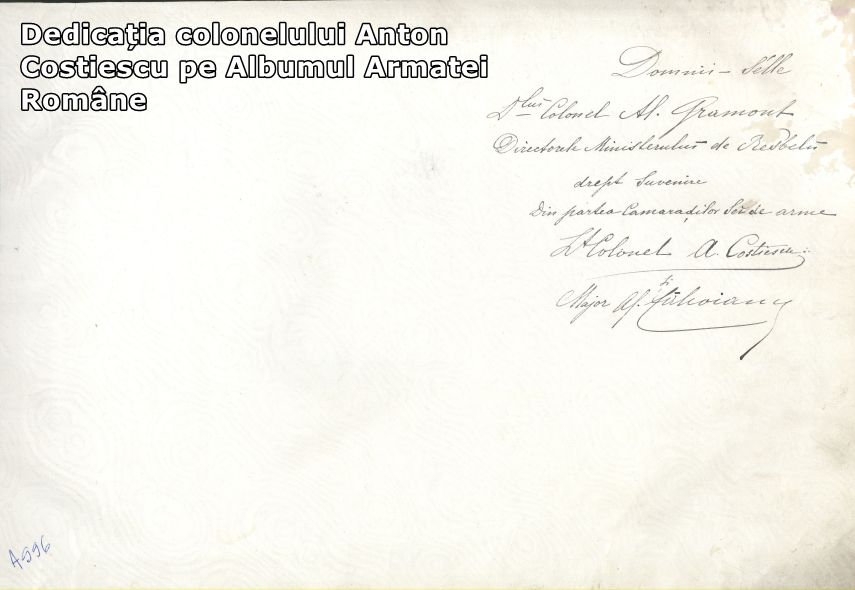 Dedicația colonelului Anton
Costiescu pe Albumul Armatei
Române
Domniei-Sélle
Dlui Colonel Al. Gramont
Directorele Ministerului de Resbelŭ
drept Suvenire
Din partea Camaraḑilor Sĕi de arme
Lt Colonel A. Costiescu
Major Al.
A996